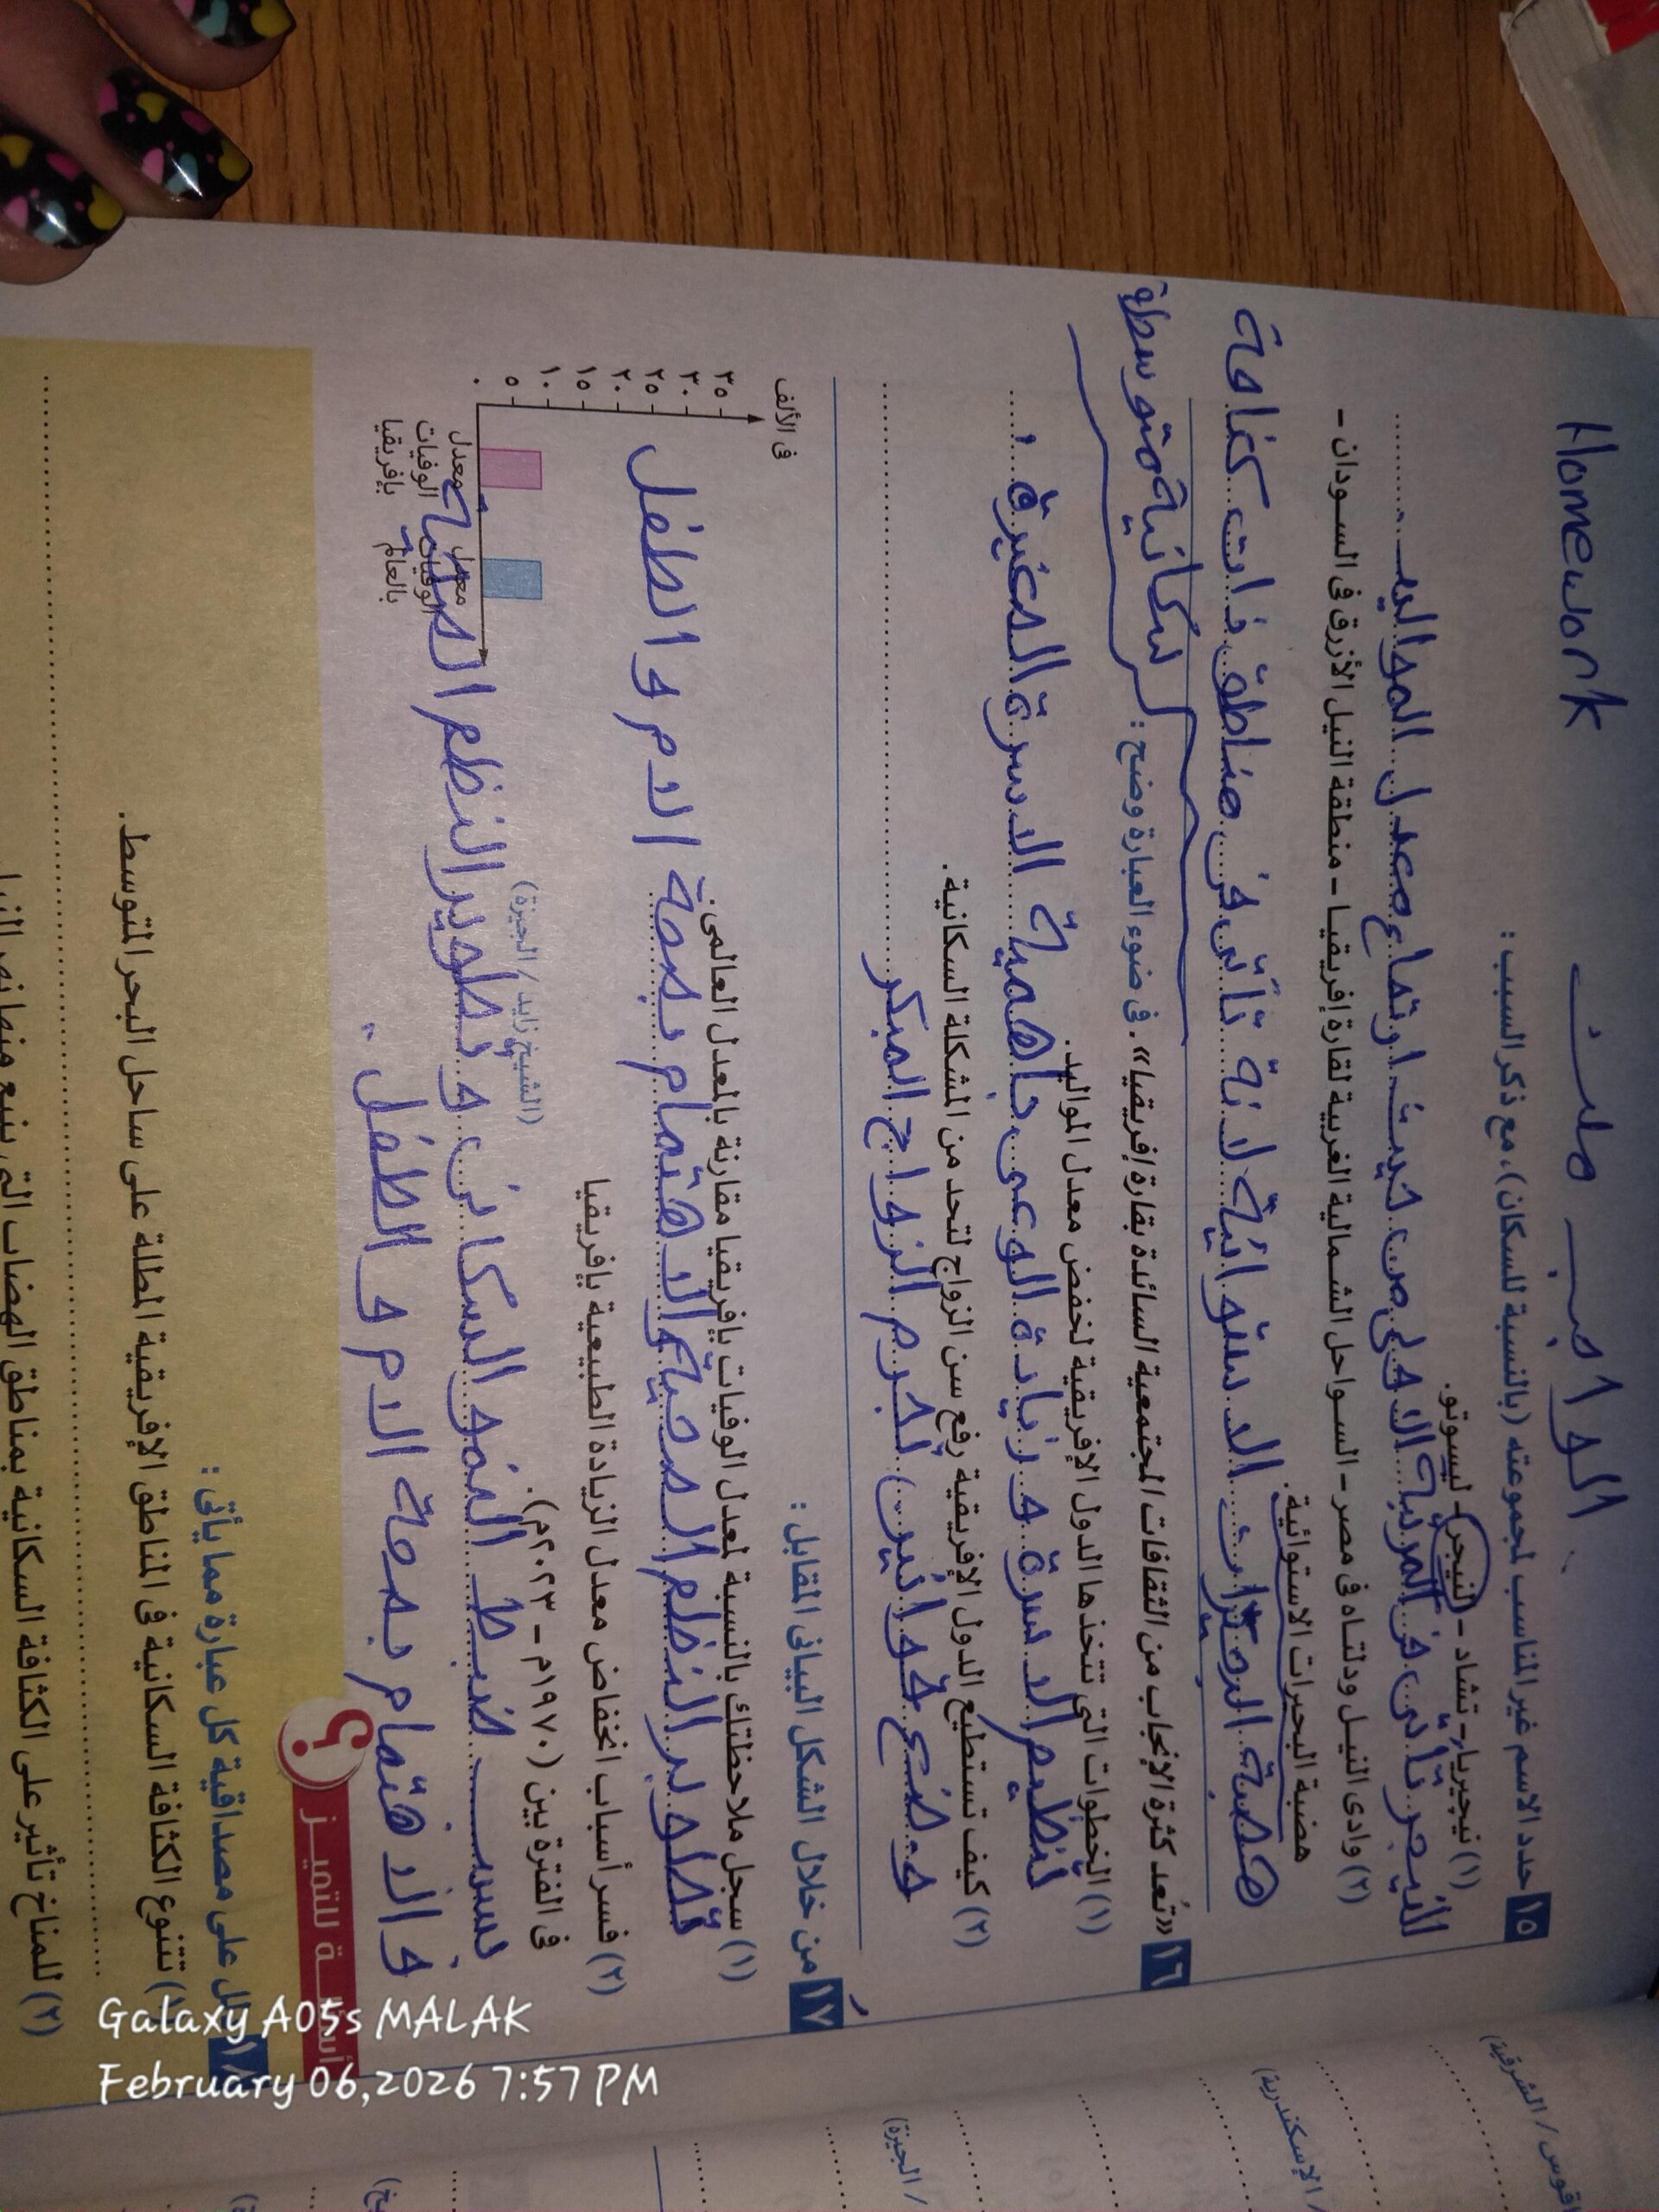 Homework الواجب ملت
١٥ حدد الاسم غير المناسب لمجموعته (بالنسبة للسكان)، مع ذكر السبب :
(١) نيچيريا – تشاد – النيجر – ليسوتو.
النيجر تأتى فى المرتبة الاولى من حيث ارتفاع معدل المواليد
(٢) وادى النيل ودلتاه فى مصر – السواحل الشمالية الغربية لقارة إفريقيا – منطقة النيل الأزرق فى السودان –
هضبة البحيرات الاستوائية.
هضبة البحيرات الاستوائية لانة تأتى فى مناطق ذات كثافة
سكانية متوسطة
١٦ «تُعد كثرة الإنجاب من الثقافات المجتمعية السائدة بقارة إفريقيا». فى ضوء العبارة وضح :
(١) الخطوات التى تتخذها الدول الإفريقية لخفض معدل المواليد.
تنظيم الاسرة و زيادة الوعى باهمية الاسرة الصغيرة
(٢) كيف تستطيع الدول الإفريقية رفع سن الزواج لتحد من المشكلة السكانية.
وضع قوانين تجرم الزواج المبكر
١٧ من خلال الشكل البيانى المقابل :
(١) سجل ملاحظتك بالنسبة لمعدل الوفيات بإفريقيا مقارنة بالمعدل العالمى.
تطوير النظم الصحية والاهتمام بصحة الام و الطفل
(٢) فسر أسباب انخفاض معدل الزيادة الطبيعية بإفريقيا
فى الفترة بين (١٩٧٠م – ٢٠٢٣م).
(الشيخ زايد / الجيزة)
بسبب ضبط النمو السكانى و تطوير النظم الصحية
والاهتمام بصحة الام و الطفل
فى الألف
٣٥
٣٠
٢٥
٢٠
١٥
١٠
٥
٠
معدل الوفيات بإفريقيا
معدل الوفيات بالعالم
أسئلة للتميز
؟
١٨ دلل على مصداقية كل عبارة مما يأتى :
(١) تتنوع الكثافة السكانية فى المناطق الإفريقية المطلة على ساحل البحر المتوسط.
(٢) للمناخ تأثير على الكثافة السكانية بمناطق الهضاب التى ينبع منها نهر النيل
/ الشرقية)
/ الإسكندرية)
/ الجيزة)
Galaxy A05s MALAK
February 06,2026 7:57 PM